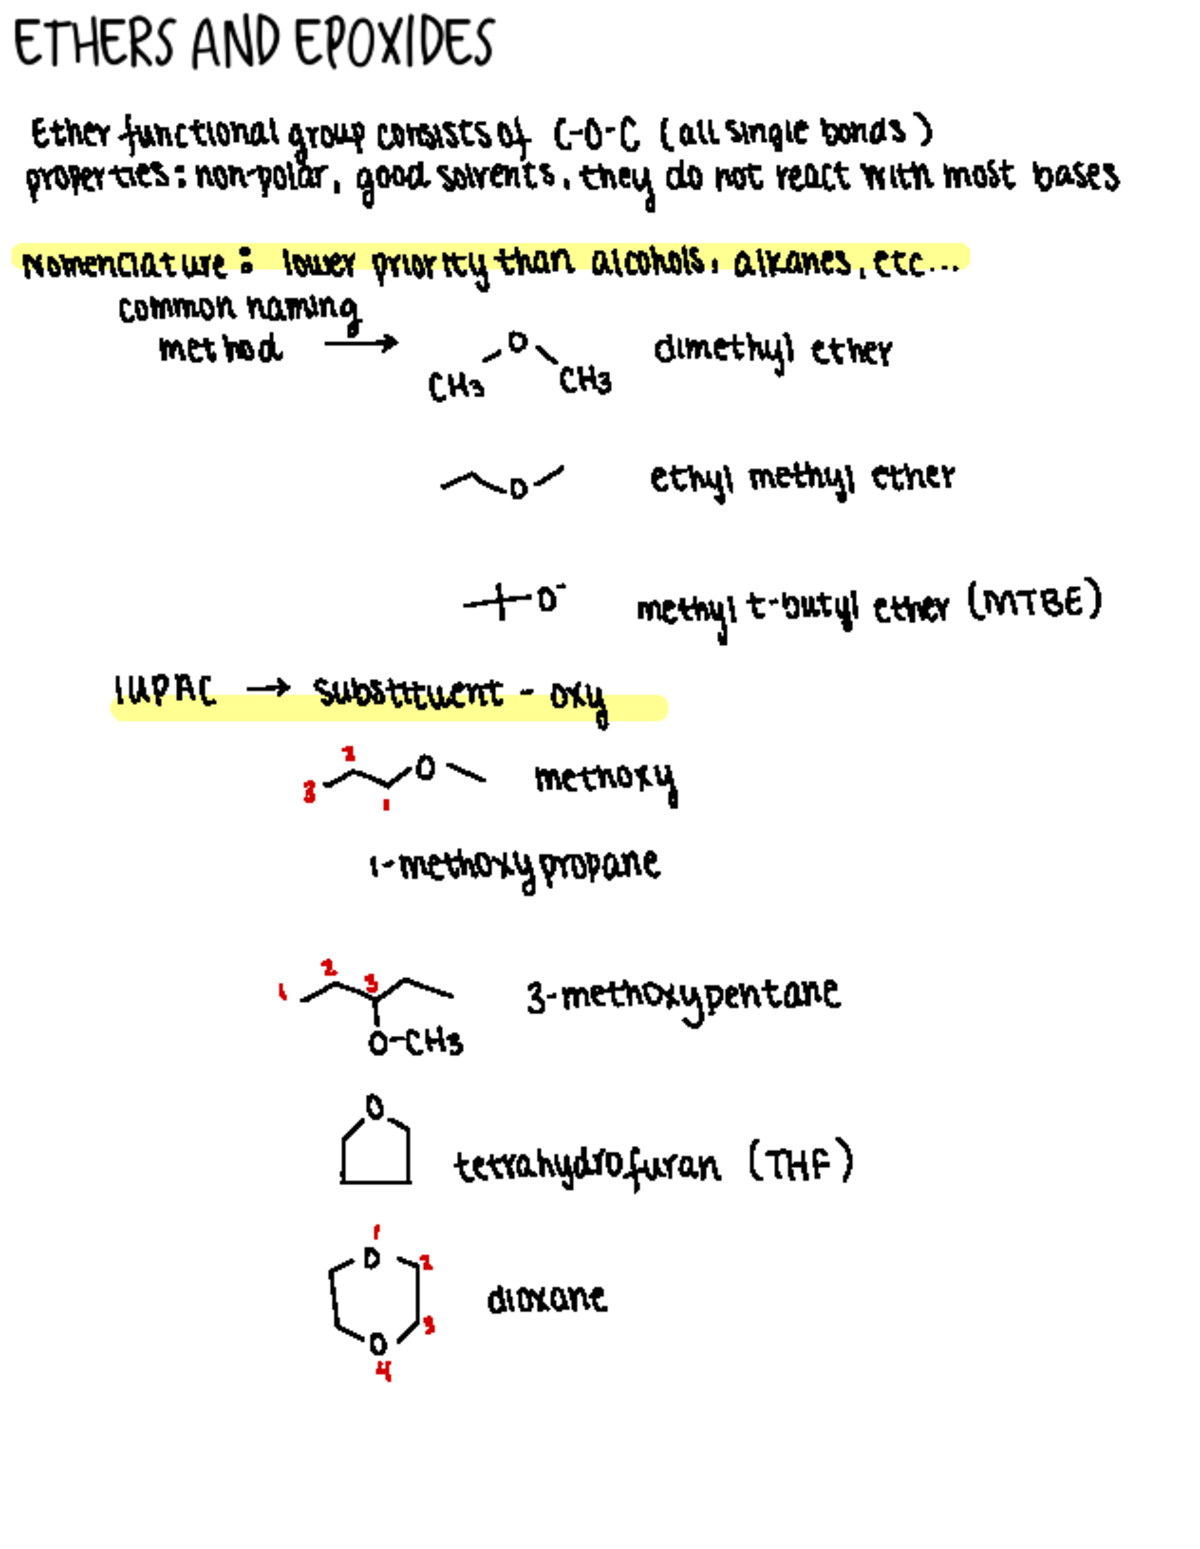 ETHERS AND EPOXIDES
Ether functional group consists of C-O-C (all single bonds)
properties: non-polar, good solvents, they do not react with most bases
Nomenclature: lower priority than alcohols, alkanes, etc...
common naming
method → O dimethyl ether
CH3 CH3
O ethyl methyl ether
O- methyl t-butyl ether (MTBE)
IUPAC → substituent - oxy
2
3 1 O methoxy
1-methoxypropane
1 2 3 3-methoxypentane
O-CH3
O
tetrahydrofuran (THF)
1
O 2
dioxane
3
O
4